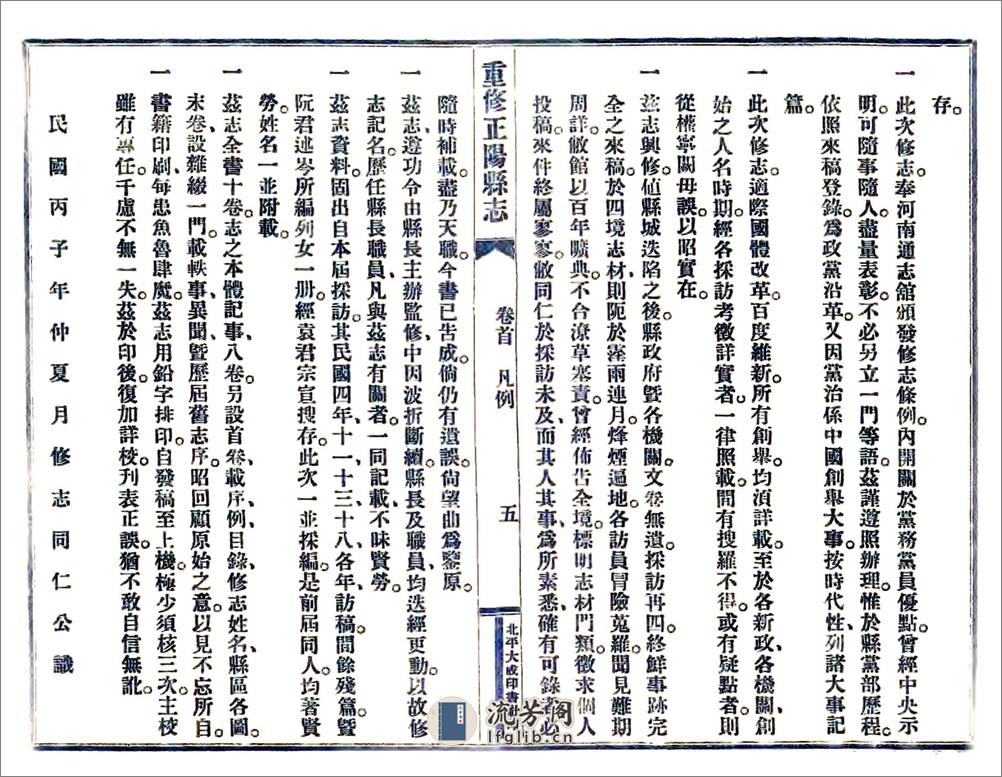 存。
一　此次修志。奉河南通志舘頒發修志條例。內開關於黨務黨員優點。曾經中央示
明。可隨事隨人。盡量表彰。不必另立一門等語。茲謹遵照辦理。惟於縣黨部歷程。
依照來稿登錄。爲政黨沿革。又因黨治係中國創舉大事。按時代性、列諸大事記
篇。
一　此次修志。適際國體改革。百度維新。所有創舉。均須詳載。至於各新政、各機關、創
始之人名時期。經各採訪考徵詳實者。一律照載。間有搜羅不得。或有疑點者。則
從權寧闕毋誤。以昭實在。
一　茲志興修。値縣城迭陷之後。縣政府曁各機關。文卷無遺。採訪再四。終鮮事跡完
全之來稿。於四境志材、則阨於滛雨連月。烽煙遍地。各訪員冒險蒐羅。聞見難期
周詳。敝館以百年曠典。不合潦草塞責。曾經佈告全境。標明志材門類。徵求個人
投稿。來件終屬寥寥。敝同仁於採訪未及、而其人其事、爲所素悉、確有可錄者、必
重修正陽縣志
卷首　凡例
五
北平大成印書社
隨時補載。盡乃天職。今書已告成。倘仍有遺誤。尙望曲爲鑒原。
一　茲志、遵功令由縣長主辦監修、中因波折斷續、縣長及職員、均迭經更動。以故修
志記名。歷任縣長職員、凡與茲志有關者。一同記載、不昧賢勞。
一　茲志資料。固出自本屆採訪。其民國四年、十一十三十八各年、訪稿間餘殘篇曁
阮君述岑所編列女一册。經袁君宗宣搜存。此次一並採編。是前屆同人。均著賢
勞。姓名一並附載。
一　茲志全書十卷。志之本體記事、八卷。另設首卷、載序、例、目錄、修志姓名、縣區各圖。
末卷、設雜綴一門。載軼事、異聞、曁歷屆舊志序。昭回顧原始之意。以見不忘所自。
一　書籍印刷、每患魚魯肆魔。茲志用鉛字排印。自發稿至上機、極少須核三次。主校
雖有專任。千慮不無一失。茲於印後。復加詳校。刋表正誤。猶不敢自信無訛。
民國丙子年仲夏月修志同仁公識
流芳閣
lfglib.cn